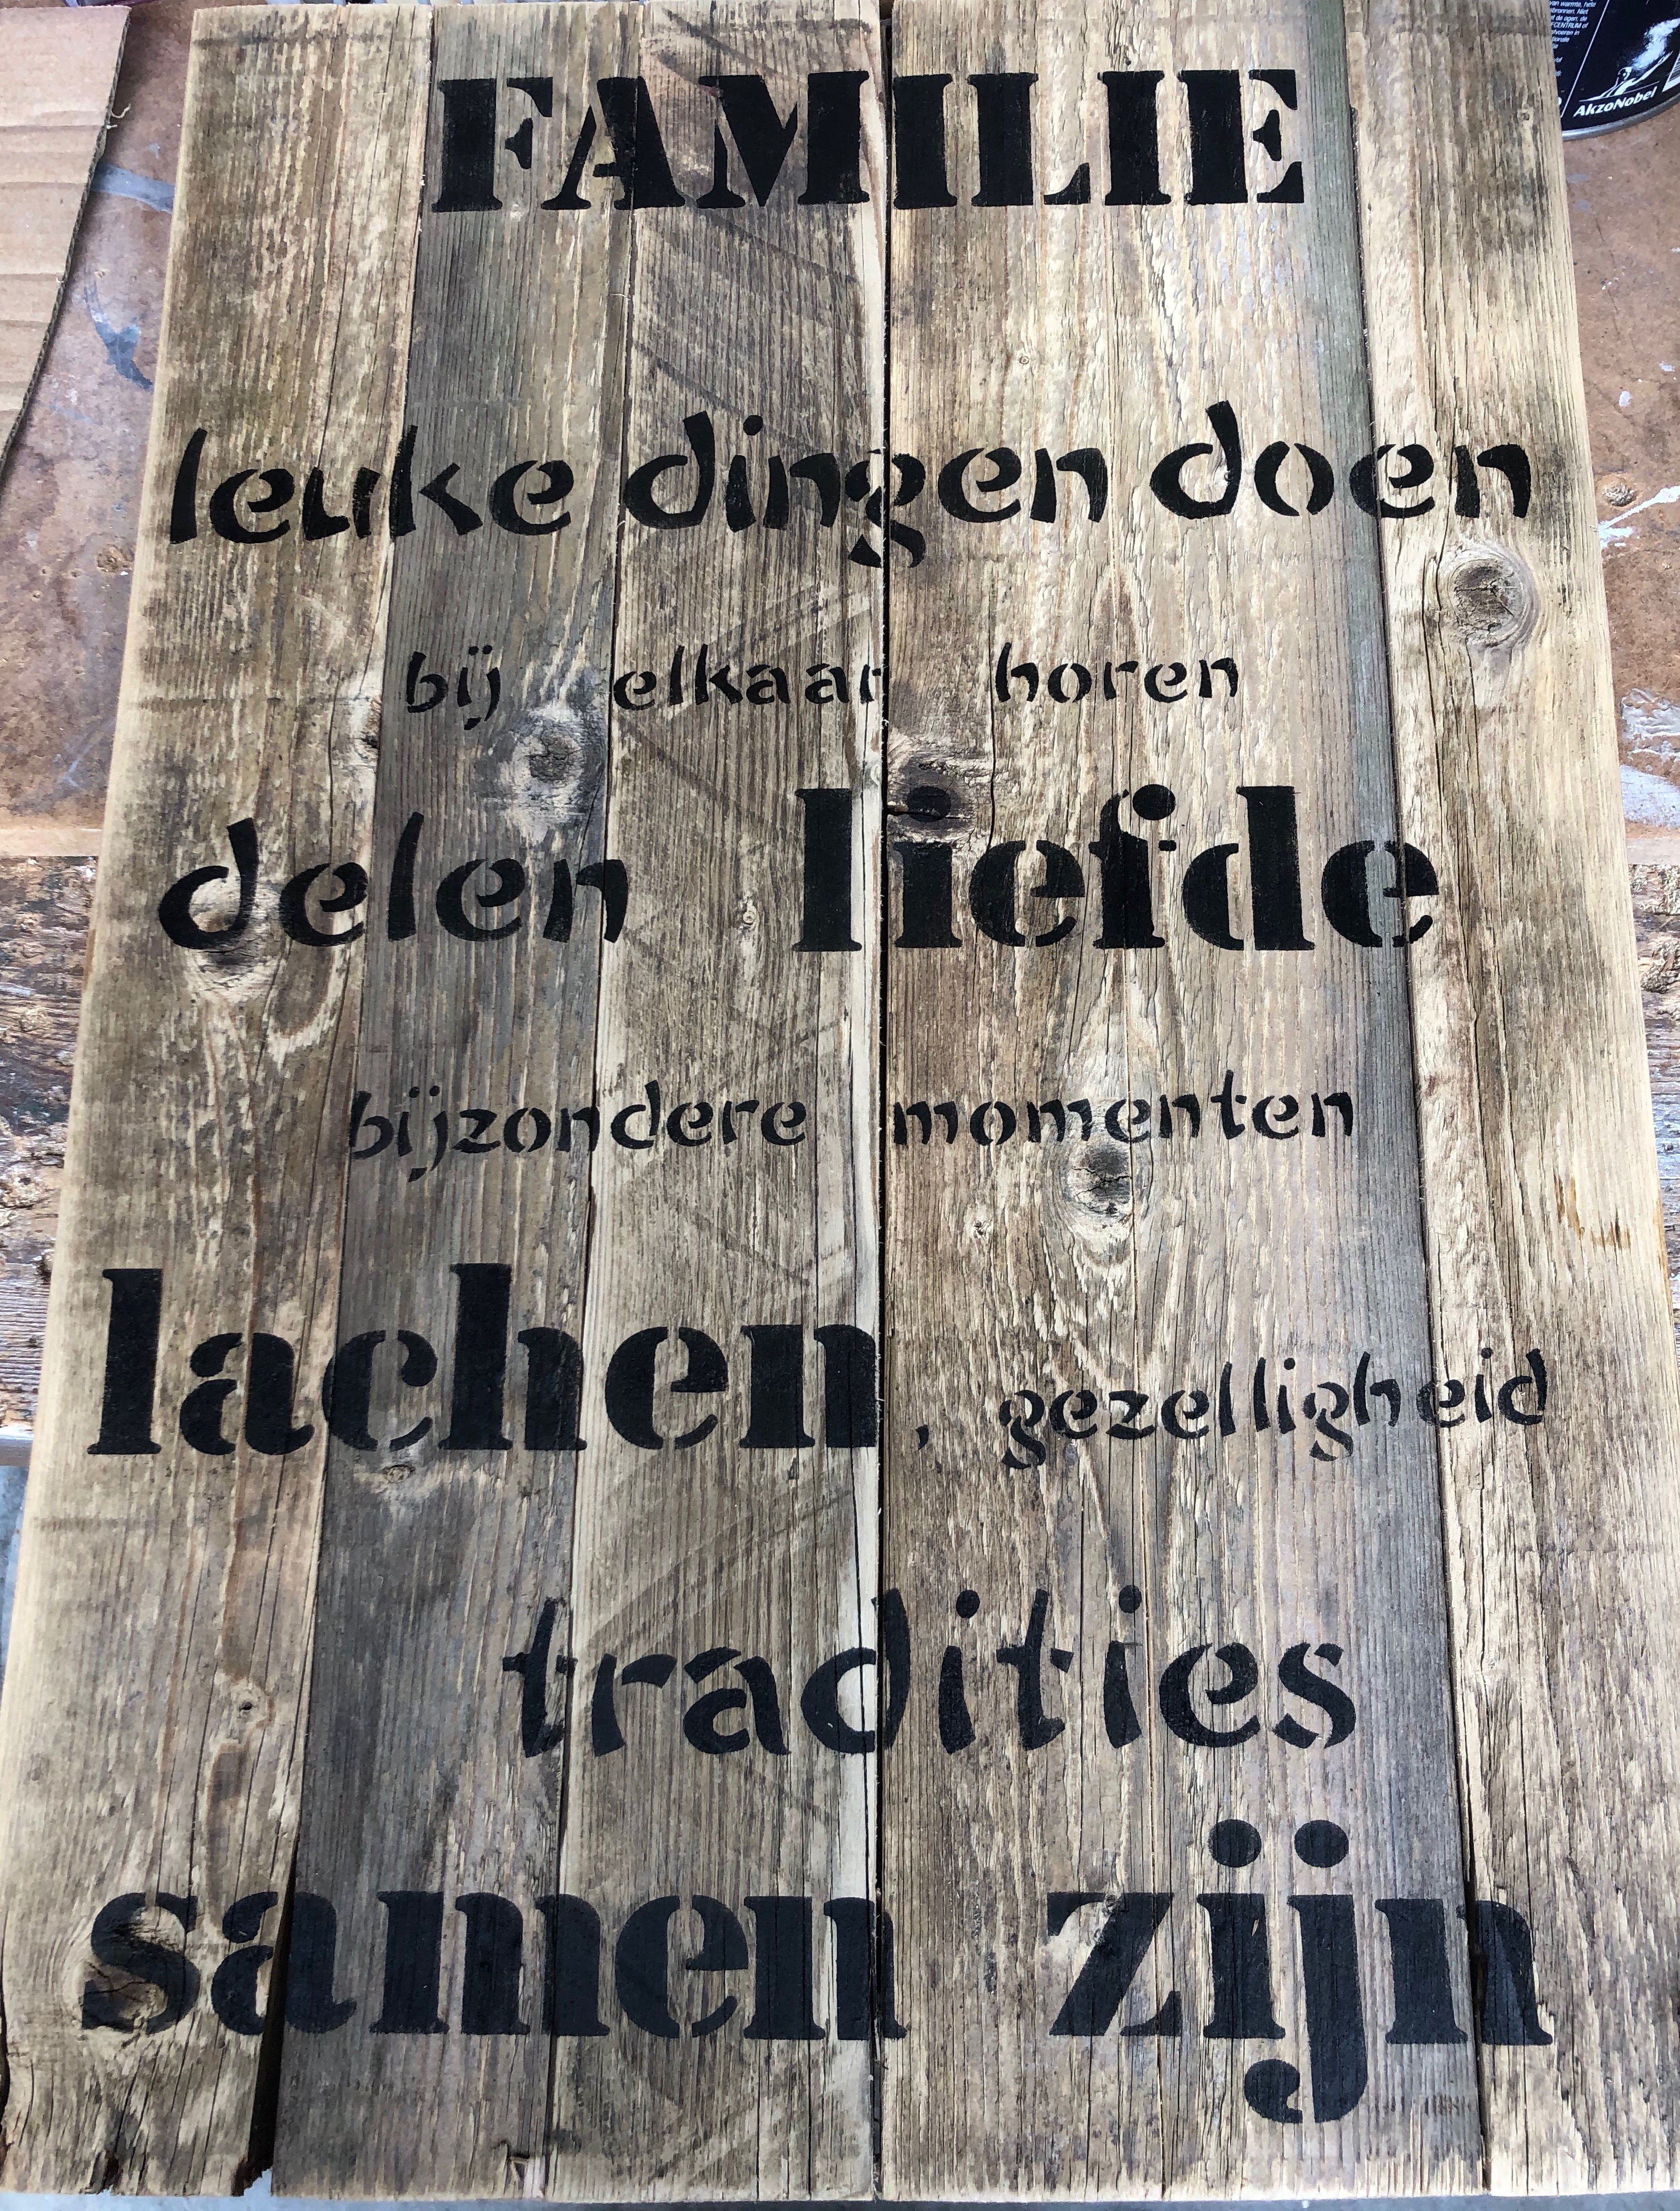 FAMILIE
leuke dingen doen
bij elkaar horen
delen liefde
bijzondere momenten
lachen, gezelligheid
tradities
samen zijn
AkzoNobel